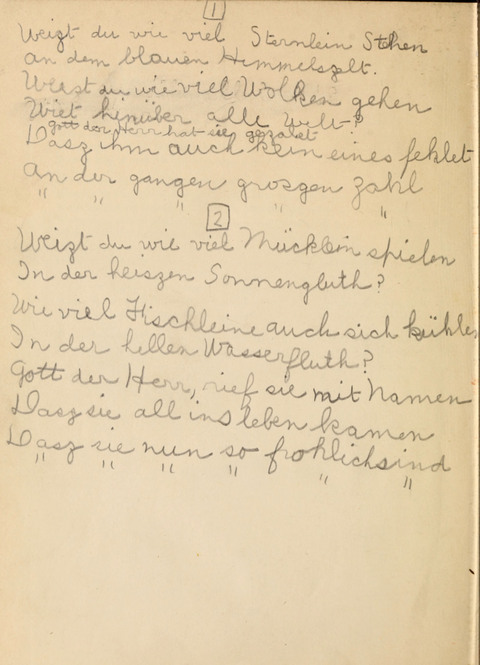 1
Weizt du wie viel Sternlein Stehen
an dem blauen Himmelszelt.
Weist du wie viel Wolken gehen
Wiet hinüber alle Welt?
gott der Herr hat sie gezalet
Dasz ihm auch kein eines fehlet
an der gangen groszen Zahl
" " " "
2
Weizt du wie viel Mücklein spielen
In der heiszen Sonnengluth?
Wie viel Fischleine auch sich kühlen
In der hellen Wasserfluth?
Gott der Herr, rief sie mit Namen
Dasz sie all ins leben kamen
Dasz sie nun so frohlich sind
" " " " " "